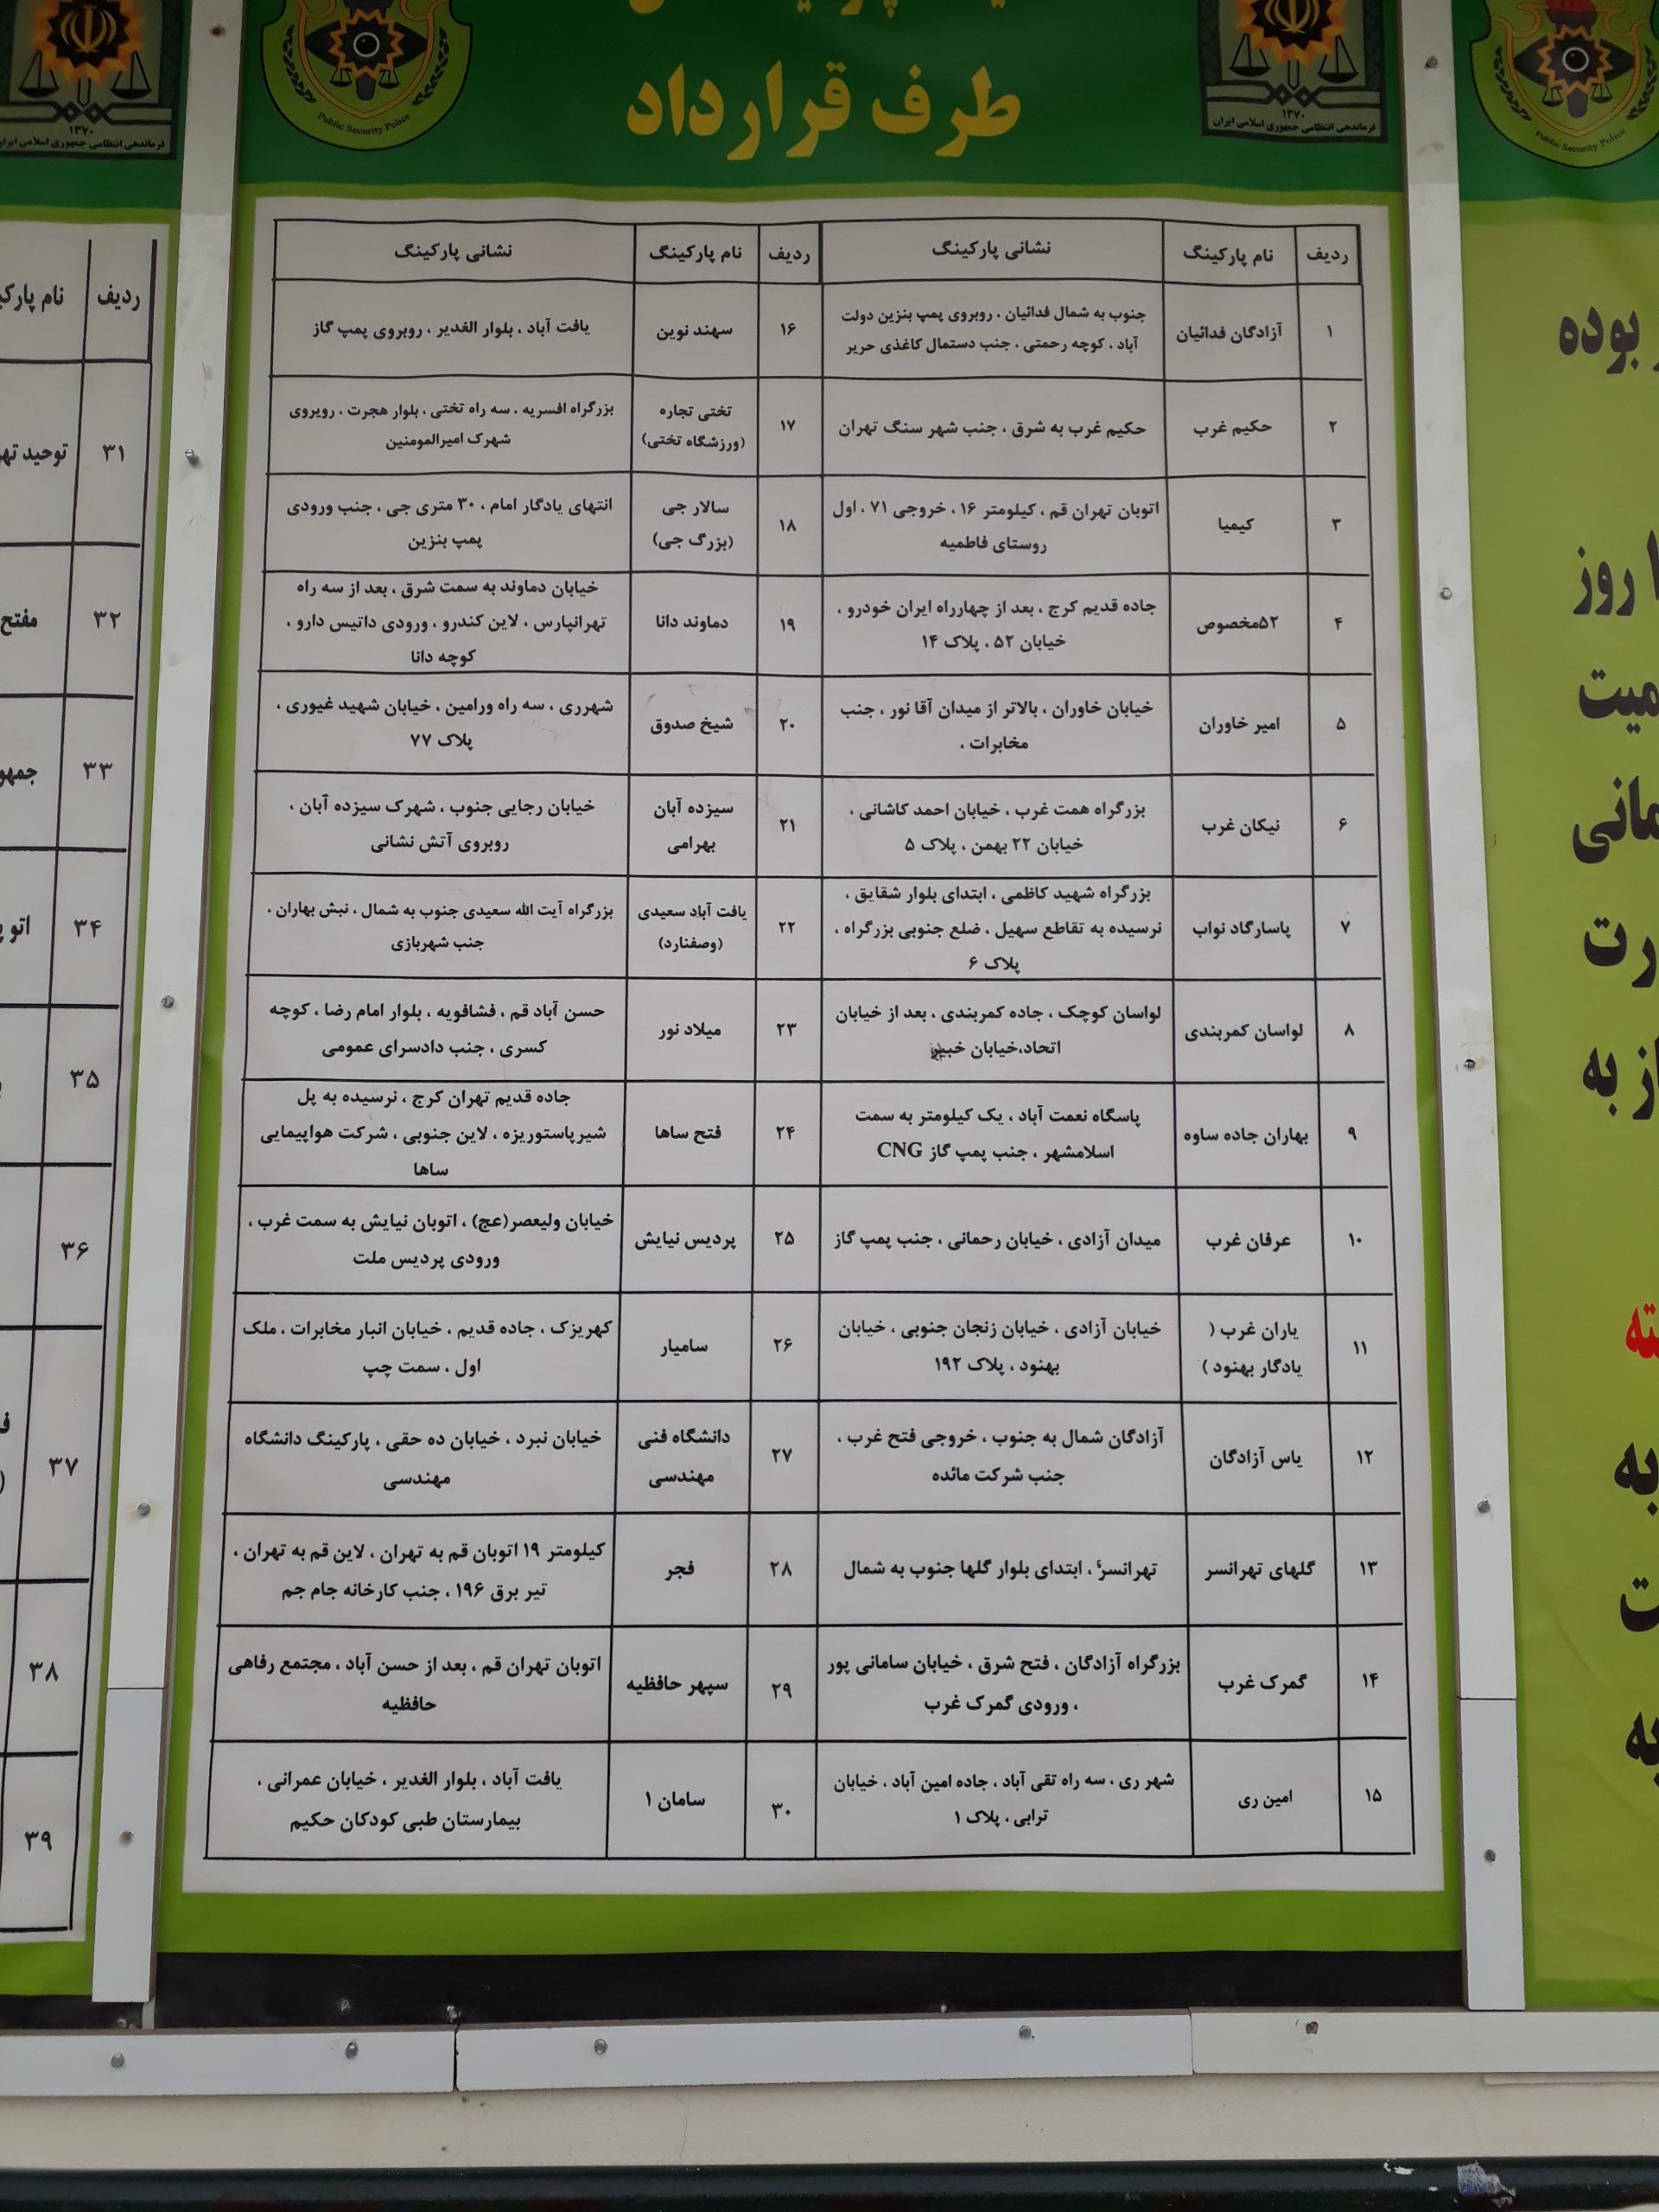 Public Security Police
۱۳۷۰
فرماندهی انتظامی جمهوری اسلامی ایران
طرف قرارداد
ردیف
نام پارکینگ
نشانی پارکینگ
۱
آزادگان فدائیان
جنوب به شمال فدائیان ، روبروی پمپ بنزین دولت
آباد ، کوچه رحمتی ، جنب دستمال کاغذی حریر
۲
حکیم غرب
حکیم غرب به شرق ، جنب شهر سنگ تهران
۳
کیمیا
اتوبان تهران قم ، کیلومتر ۱۶ ، خروجی ۷۱ ، اول
روستای فاطمیه
۴
۵۲مخصوص
جاده قدیم کرج ، بعد از چهارراه ایران خودرو ،
خیابان ۵۲ ، پلاک ۱۴
۵
امیر خاوران
خیابان خاوران ، بالاتر از میدان آقا نور ، جنب
مخابرات ،
۶
نیکان غرب
بزرگراه همت غرب ، خیابان احمد کاشانی ،
خیابان ۲۲ بهمن ، پلاک ۵
۷
پاسارگاد نواب
بزرگراه شهید کاظمی ، ابتدای بلوار شقایق ،
نرسیده به تقاطع سهیل ، ضلع جنوبی بزرگراه ،
پلاک ۶
۸
لواسان کمربندی
لواسان کوچک ، جاده کمربندی ، بعد از خیابان
اتحاد،خیابان
۹
بهاران جاده ساوه
پاسگاه نعمت آباد ، یک کیلومتر به سمت
اسلامشهر ، جنب پمپ گاز CNG
۱۰
عرفان غرب
میدان آزادی ، خیابان رحمانی ، جنب پمپ گاز
۱۱
یاران غرب (
یادگار بهنود )
خیابان آزادی ، خیابان زنجان جنوبی ، خیابان
بهنود ، پلاک ۱۹۲
۱۲
یاس آزادگان
آزادگان شمال به جنوب ، خروجی فتح غرب ،
جنب شرکت مائده
۱۳
گلهای تهرانسر
تهرانسر ، ابتدای بلوار گلها جنوب به شمال
۱۴
گمرک غرب
بزرگراه آزادگان ، فتح شرق ، خیابان سامانی پور
، ورودی گمرک غرب
۱۵
امین ری
شهر ری ، سه راه تقی آباد ، جاده امین آباد ، خیابان
ترابی ، پلاک ۱
ردیف
نام پارکینگ
نشانی پارکینگ
۱۶
سهند نوین
یافت آباد ، بلوار الغدیر ، روبروی پمپ گاز
۱۷
تختی تجاره
(ورزشگاه تختی)
بزرگراه افسریه ، سه راه تختی ، بلوار هجرت ، روبروی
شهرک امیرالمومنین
۱۸
سالار جی
(بزرگ جی)
انتهای یادگار امام ، ۳۰ متری جی ، جنب ورودی
پمپ بنزین
۱۹
دماوند دانا
خیابان دماوند به سمت شرق ، بعد از سه راه
تهرانپارس ، لاین کندرو ، ورودی داتیس دارو ،
کوچه دانا
۲۰
شیخ صدوق
شهرری ، سه راه ورامین ، خیابان شهید غیوری ،
پلاک ۷۷
۲۱
سیزده آبان
بهرامی
خیابان رجایی جنوب ، شهرک سیزده آبان ،
روبروی آتش نشانی
۲۲
یافت آباد سعیدی
(وصفنارد)
بزرگراه آیت الله سعیدی جنوب به شمال ، نبش بهاران ،
جنب شهربازی
۲۳
میلاد نور
حسن آباد قم ، فشافویه ، بلوار امام رضا ، کوچه
کسری ، جنب دادسرای عمومی
۲۴
فتح ساها
جاده قدیم تهران کرج ، نرسیده به پل
شیرپاستوریزه ، لاین جنوبی ، شرکت هواپیمایی
ساها
۲۵
پردیس نیایش
خیابان ولیعصر(عج) ، اتوبان نیایش به سمت غرب ،
ورودی پردیس ملت
۲۶
سامیار
کهریزک ، جاده قدیم ، خیابان انبار مخابرات ، ملک
اول ، سمت چپ
۲۷
دانشگاه فنی
مهندسی
خیابان نبرد ، خیابان ده حقی ، پارکینگ دانشگاه
مهندسی
۲۸
فجر
کیلومتر ۱۹ اتوبان قم به تهران ، لاین قم به تهران ،
تیر برق ۱۹۶ ، جنب کارخانه جام جم
۲۹
سپهر حافظیه
اتوبان تهران قم ، بعد از حسن آباد ، مجتمع رفاهی
حافظیه
۳۰
سامان ۱
یافت آباد ، بلوار الغدیر ، خیابان عمرانی ،
بیمارستان طبی کودکان حکیم
ردیف
نام
۳۱
توحید
۳۲
مفتح
۳۳
۳۴
۳۵
۳۶
۳۷
۳۸
۳۹
Public Security Police
بوده
روز
به
به